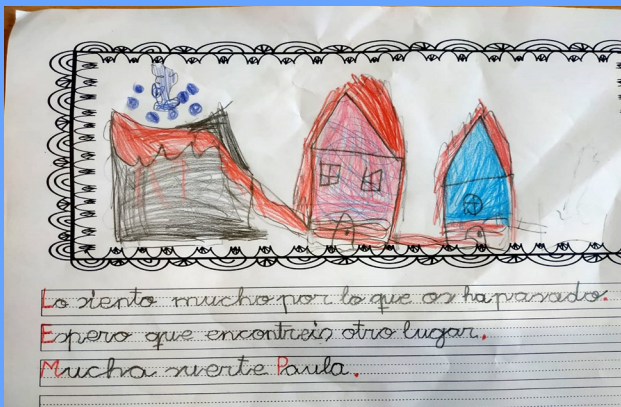 Lo siento mucho por lo que os ha pasado.
Espero que encontreis otro lugar.
Mucha suerte Paula.